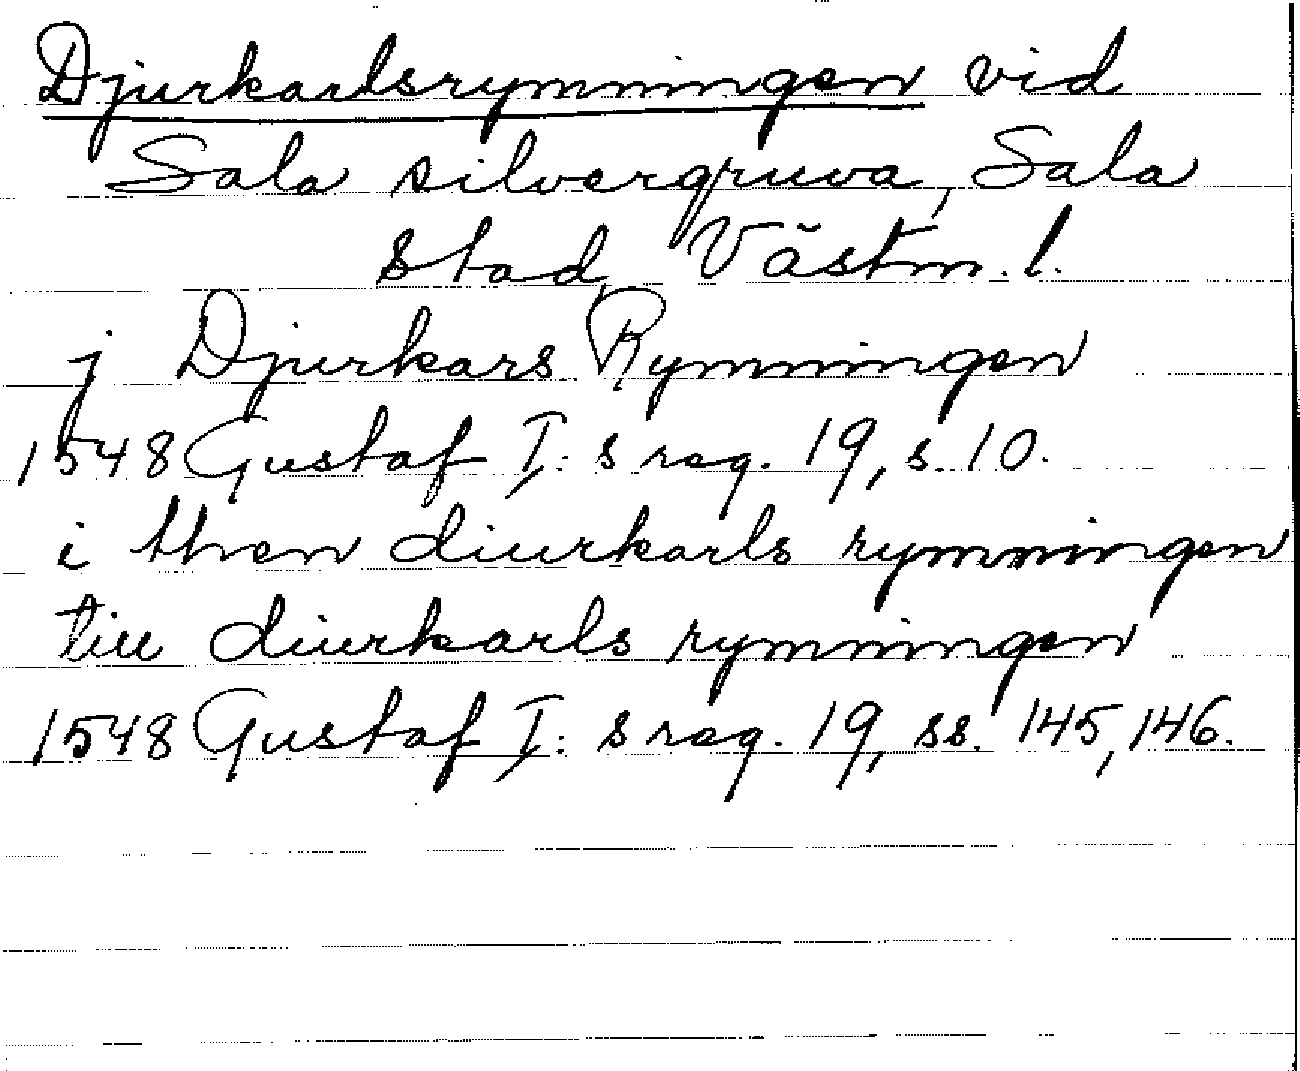 Djurkarlsrymningen vid
Sala silvergruva, Sala
stad, Västm. l.
j Djurkars Rymningen
1548 Gustaf I: s reg. 19, s. 10.
i then diurkarls rymningen
till diurkarls rymningen
1548 Gustaf I: s reg. 19, ss. 145, 146.